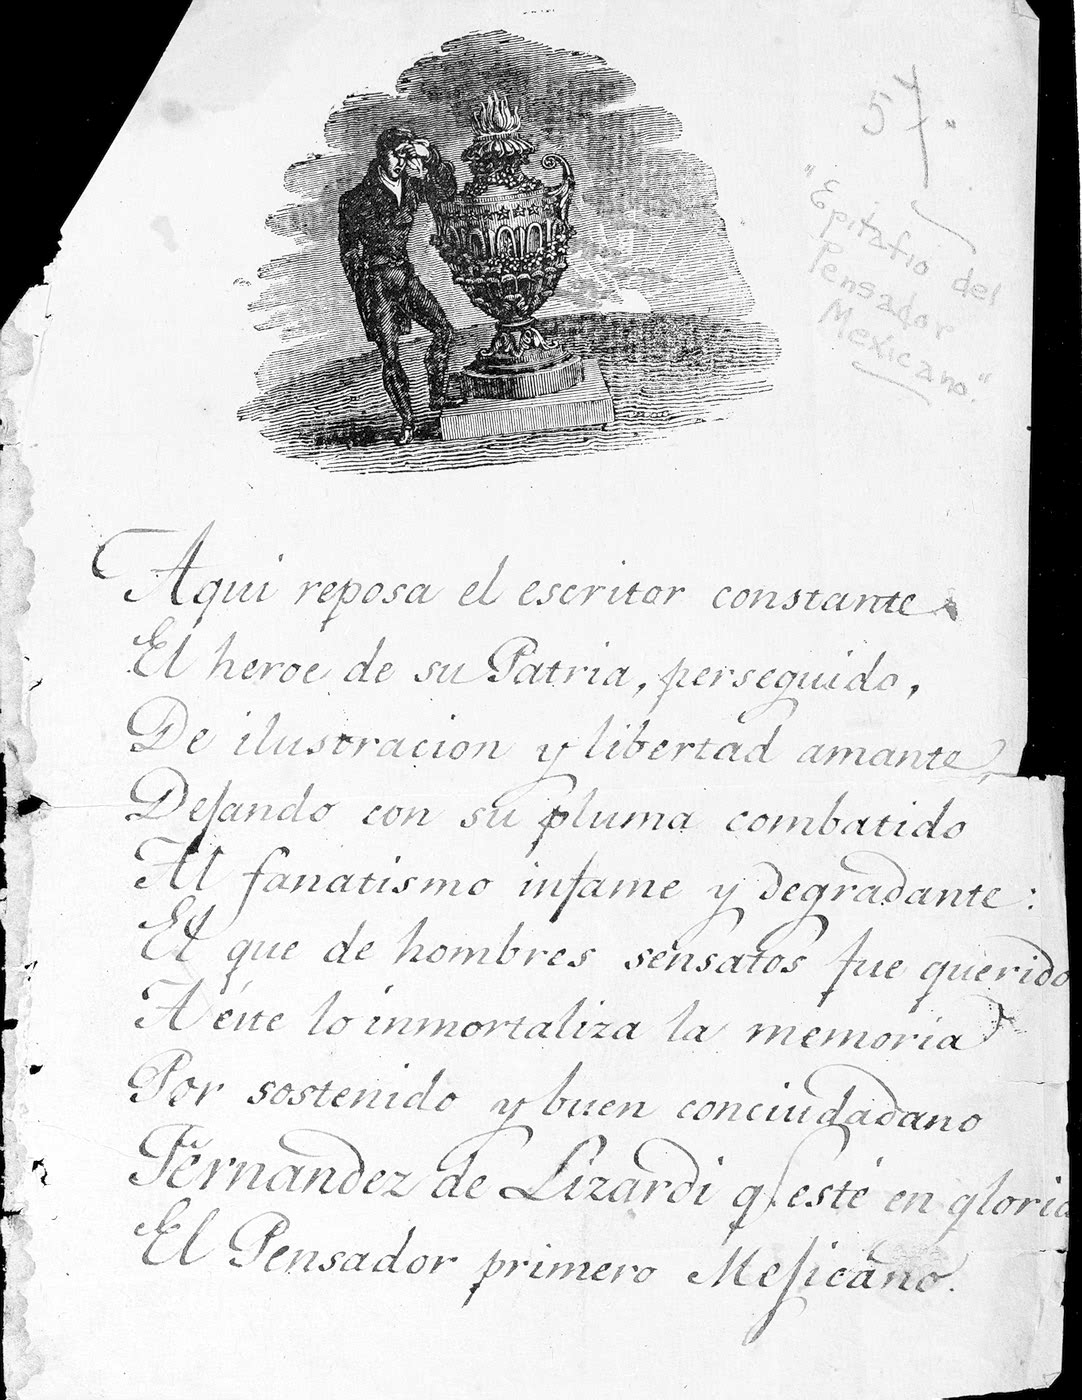 57.
"Epitafio del
Pensador
Mexicano."
Aqui reposa el escritor constante
El heroe de su Patria, perseguido,
De ilustracion y libertad amante,
Dejando con su pluma combatido
Al fanatismo infame y degradante:
El que de hombres sensatos fue querido
A éste lo inmortaliza la memoria
Por sostenido y buen conciudadano
Fernandez de Lizardi q. esté en gloria
El Pensador primero Mejicano.